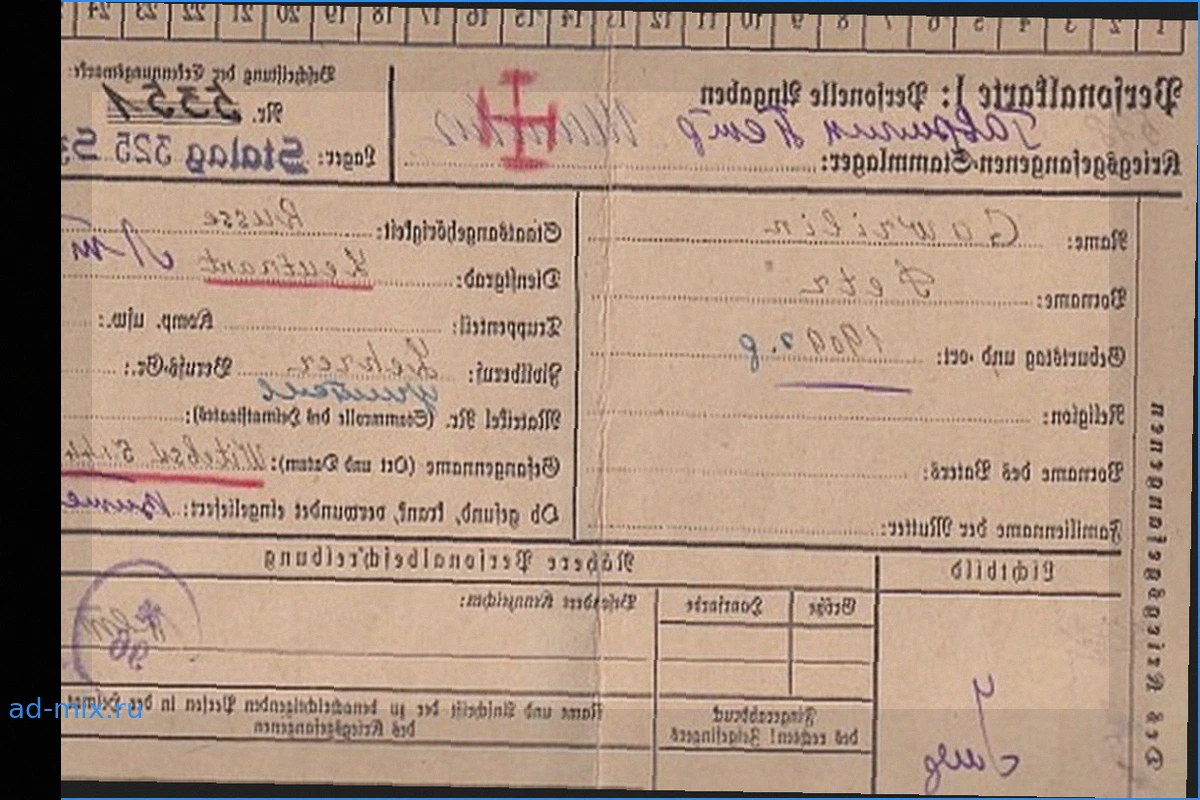 1 2 3 4 5 6 7 8 9 10 11 12 13 14 15 16 17 18 19 20 21 22 23 24
Personalkarte I: Personelle Angaben
Гаврилин Петр
Kriegsgefangenen-Stammlager:
Beschriftung der Erkennungsmarke
Nr. 5351
Lager: Stalag 325
Name: Gawrilin
Vorname: Petr
Geburtstag und -ort: 1909 г.р
Religion:
Vorname des Vaters:
Familienname der Mutter:
Staatsangehörigkeit: Russe
Dienstgrad: Leutnant
Truppenteil: Komp. usw.:
Zivilberuf: Lehrer Berufs-Gr.:
учитель
Matrikel Nr. (Stammrolle des Heimatstaates):
Gefangennahme (Ort und Datum): Witebsk
Ob gesund, krank, verwundet eingeliefert:
Des Kriegsgefangenen
Lichtbild
Nähere Personalbeschreibung
Größe Haarfarbe Besondere Kennzeichen:
Fingerabdruck
des rechten! Zeigefingers
Name und Anschrift der zu benachrichtigenden Person in der
des Kriegsgefangenen
ad-mix.ru